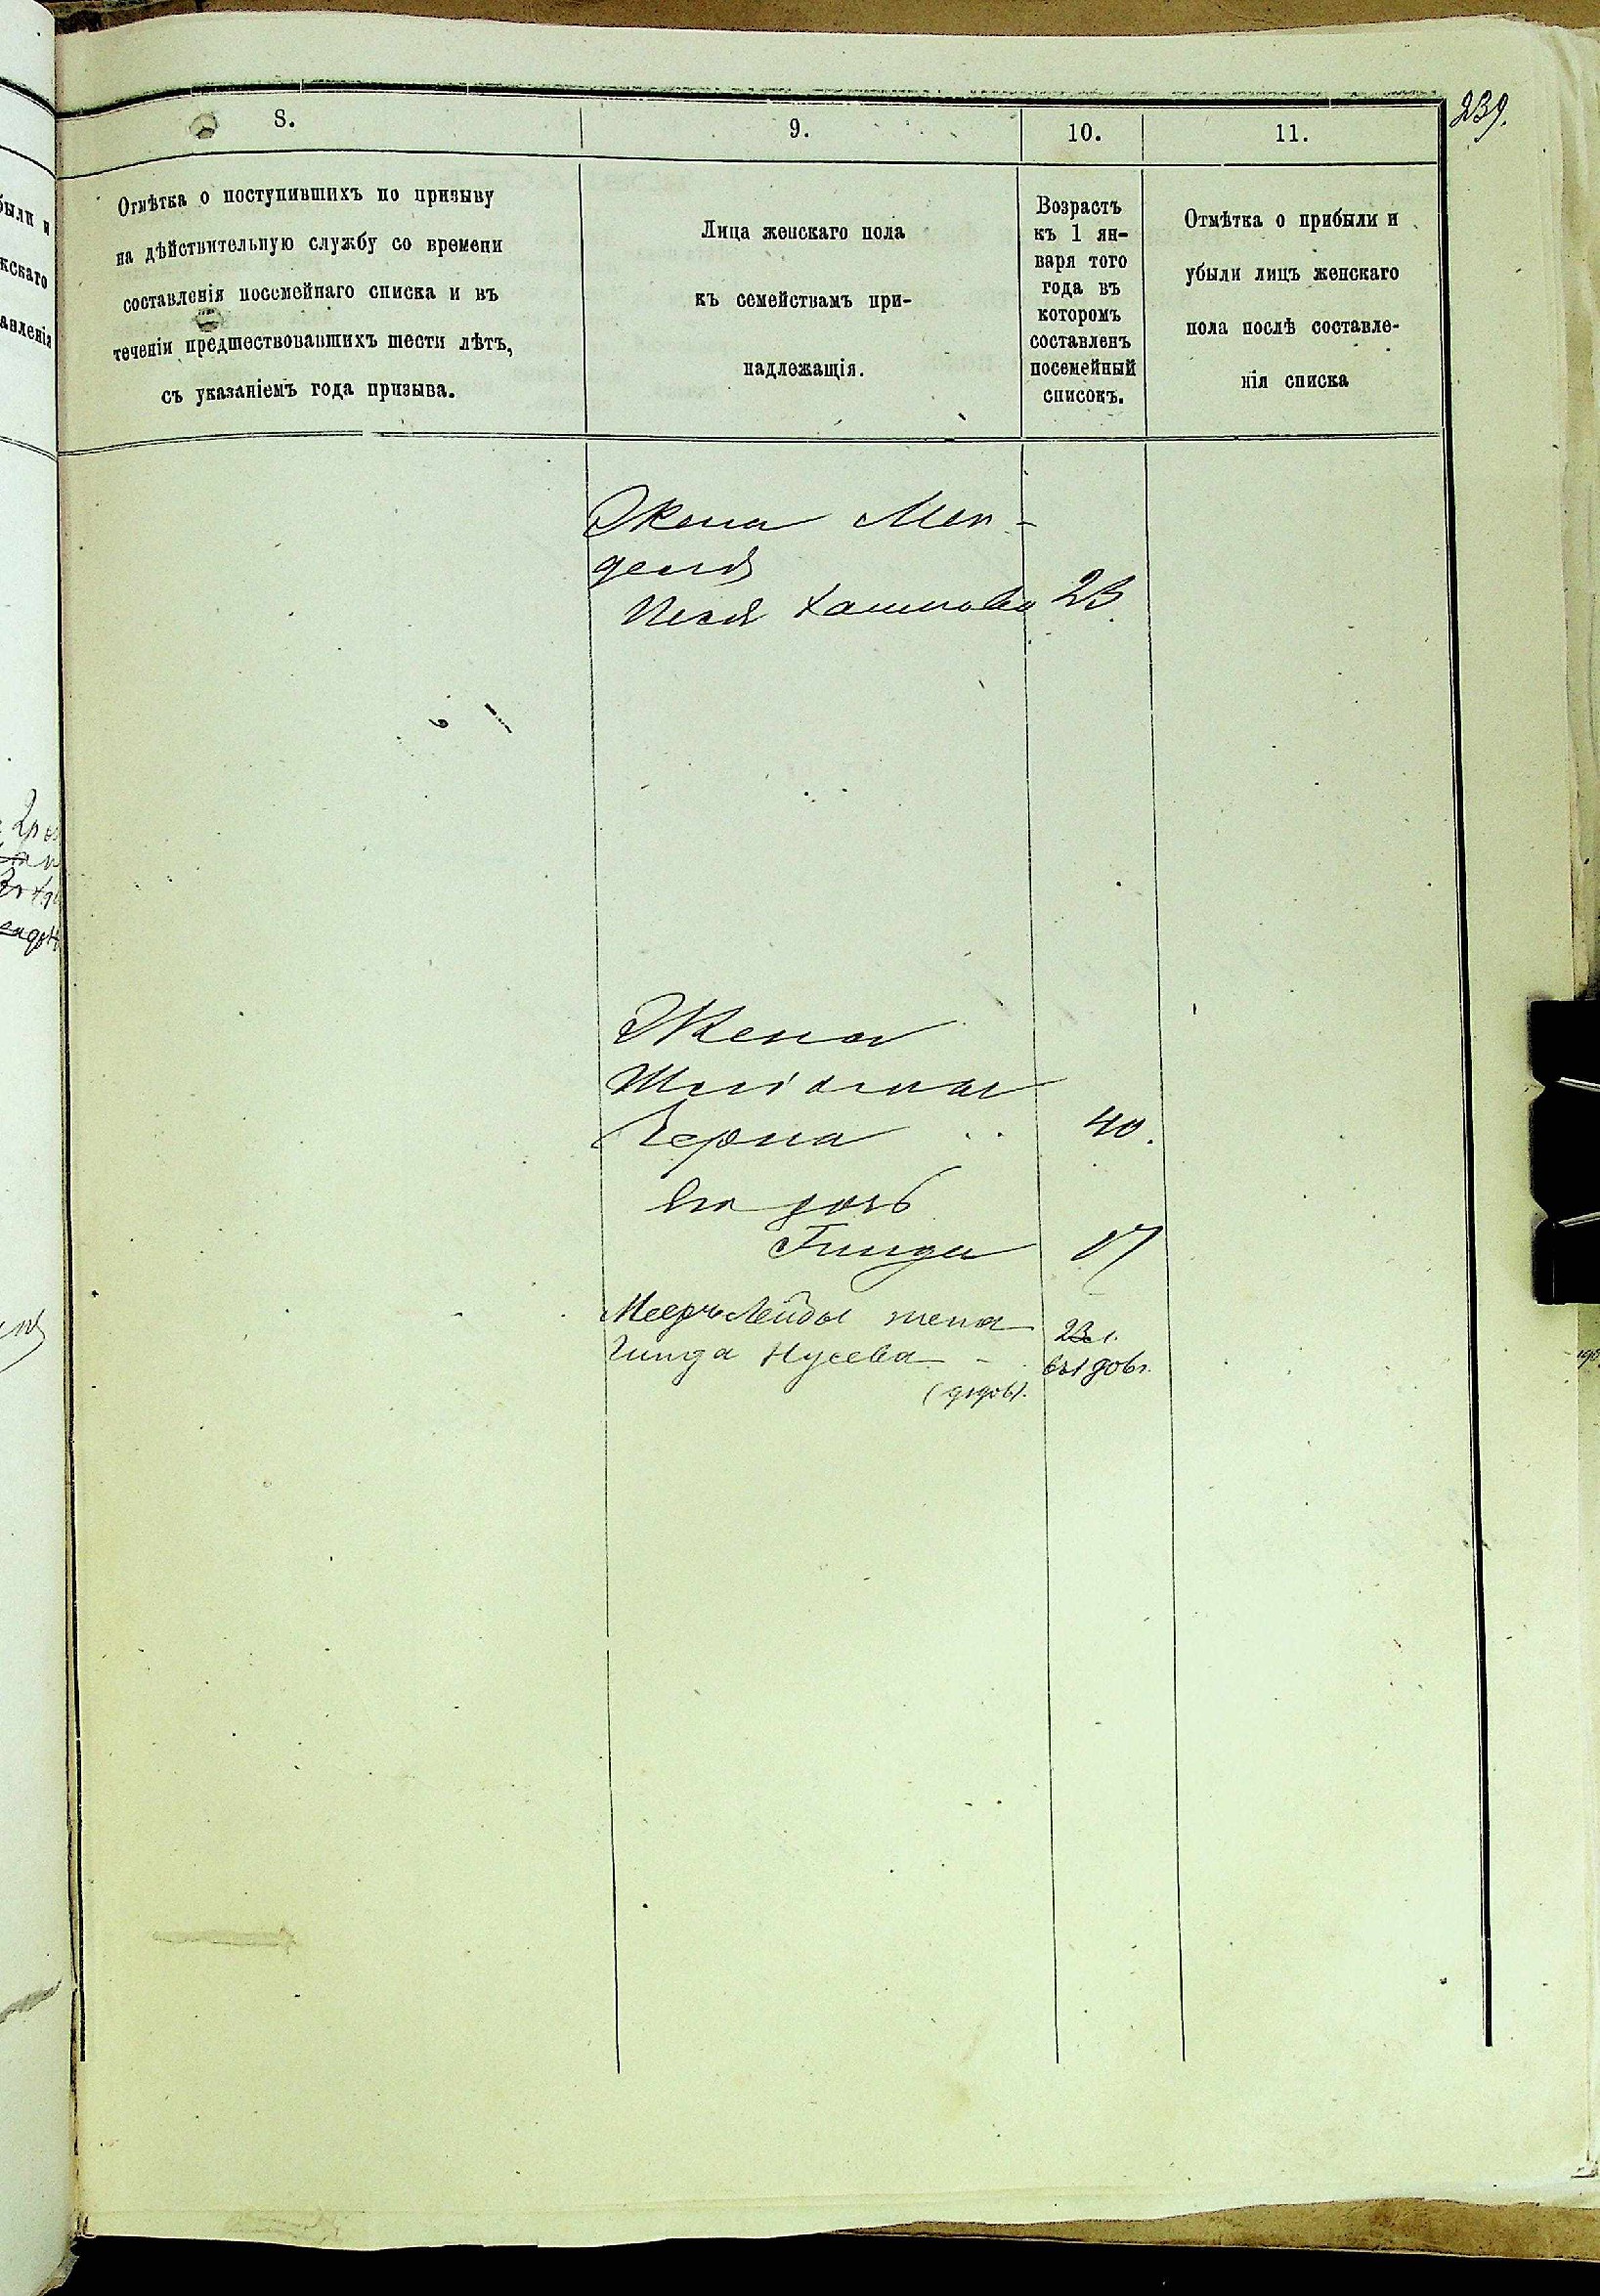 239.
8.
9.
10.
11.
Отмѣтка о поступившихъ по призыву
на дѣйствительную службу со времени
составленія посемейнаго списка и въ
теченіи предшествовавшихъ шести лѣтъ,
съ указаніемъ года призыва.
Лица женскаго пола
къ семействамъ при-
надлежащія.
Возрастъ
къ 1 ян-
варя того
года въ
которомъ
составленъ
посемейный
списокъ.
Отмѣтка о прибыли и
убыли лицъ женскаго
пола послѣ составле-
нія списка
Жена Мен-
деля
Песя 23.
Жена
Черна 40.
Его дочь
Гинда 17
Лейбы жена
Гинда Нусева